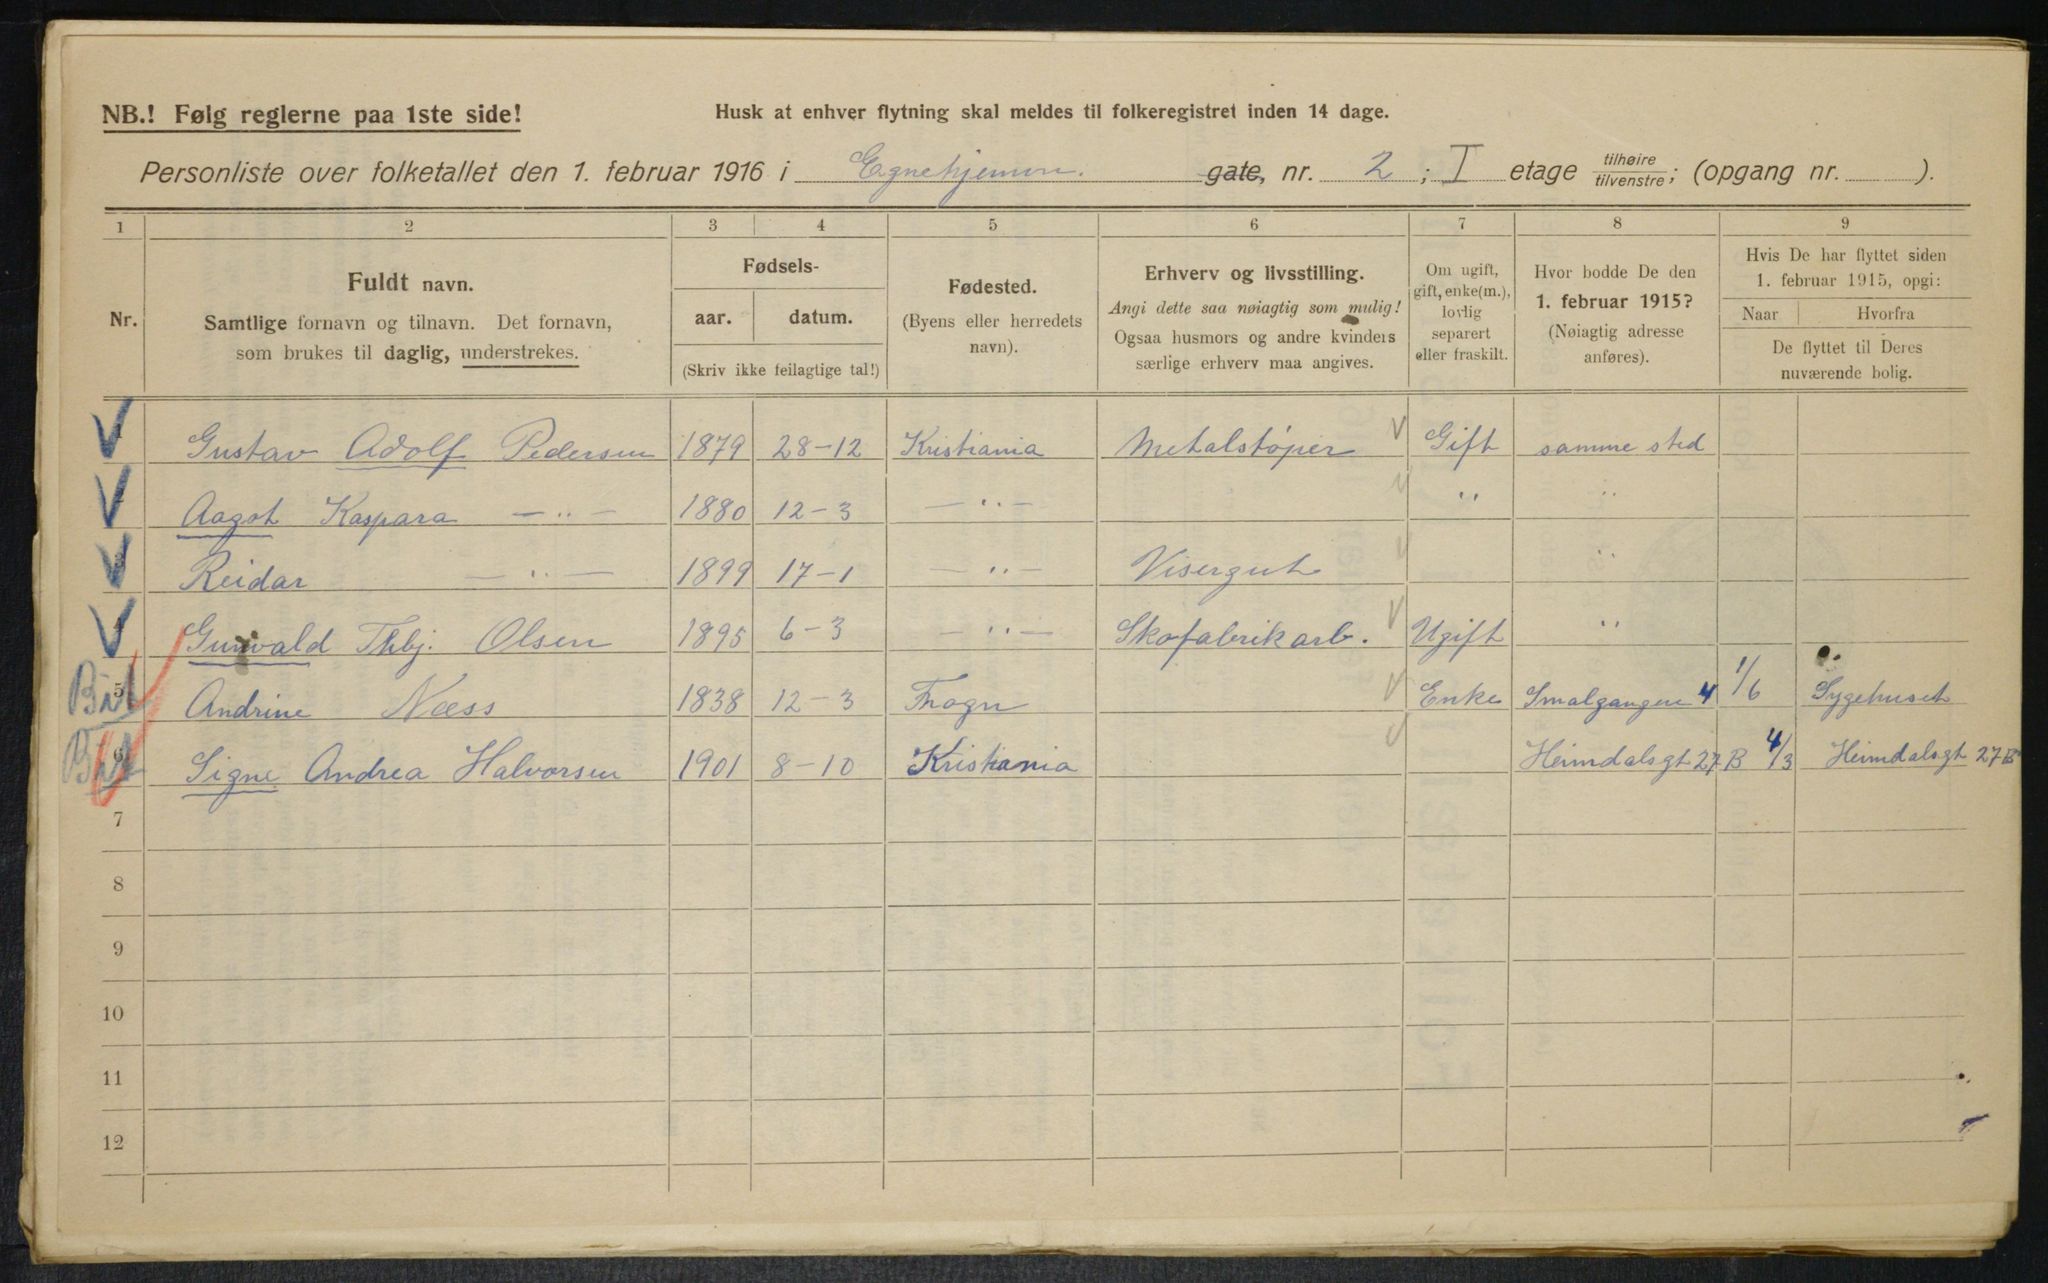 NB.! Følg reglerne paa 1ste side! Husk at enhver flytning skal meldes til folkeregistret inden 14 dage.
Personliste over folketallet den 1. februar 1916 i Egnehjemmn. gate, nr. 2 ; I etage tilhøire/tilvenstre; (opgang nr. ).
1 2 3 4 5 6 7 8 9
Nr.
Fuldt navn.
Samtlige fornavn og tilnavn. Det fornavn,
som brukes til daglig, understrekes.
Fødsels-
aar. datum.
(Skriv ikke feilagtige tal!)
Fødested.
(Byens eller herredets
navn).
Erhverv og livsstilling.
Angi dette saa nøiagtig som mulig!
Ogsaa husmors og andre kvinders
særlige erhverv maa angives.
Om ugift,
gift, enke(m.),
lovlig
separert
eller fraskilt.
Hvor bodde De den
1. februar 1915?
(Nøiagtig adresse
anføres).
Hvis De har flyttet siden
1. februar 1915, opgi:
Naar Hvorfra
De flyttet til Deres
nuværende bolig.
1 Gustav Adolf Pedersen 1879 28-12 Kristiania Metalstøper Gift samme sted
2 Aagot Kaspara —"— 1880 12-3 —"— " "
3 Reidar —"— 1899 17-1 —"— Visergut "
4 Gunvald Thbj. Olsen 1895 6-3 —"— Skofabrikarb. Ugift "
5 Andrine Næss 1838 12-3 Frogn Enke Smalgangen 4 1/6 Sygehuset
6 Signe Andrea Halvorsen 1901 8-10 Kristiania Heimdalsgt 27 B 4/3 Heimdalsgt 27 B
7
8
9
10
11
12